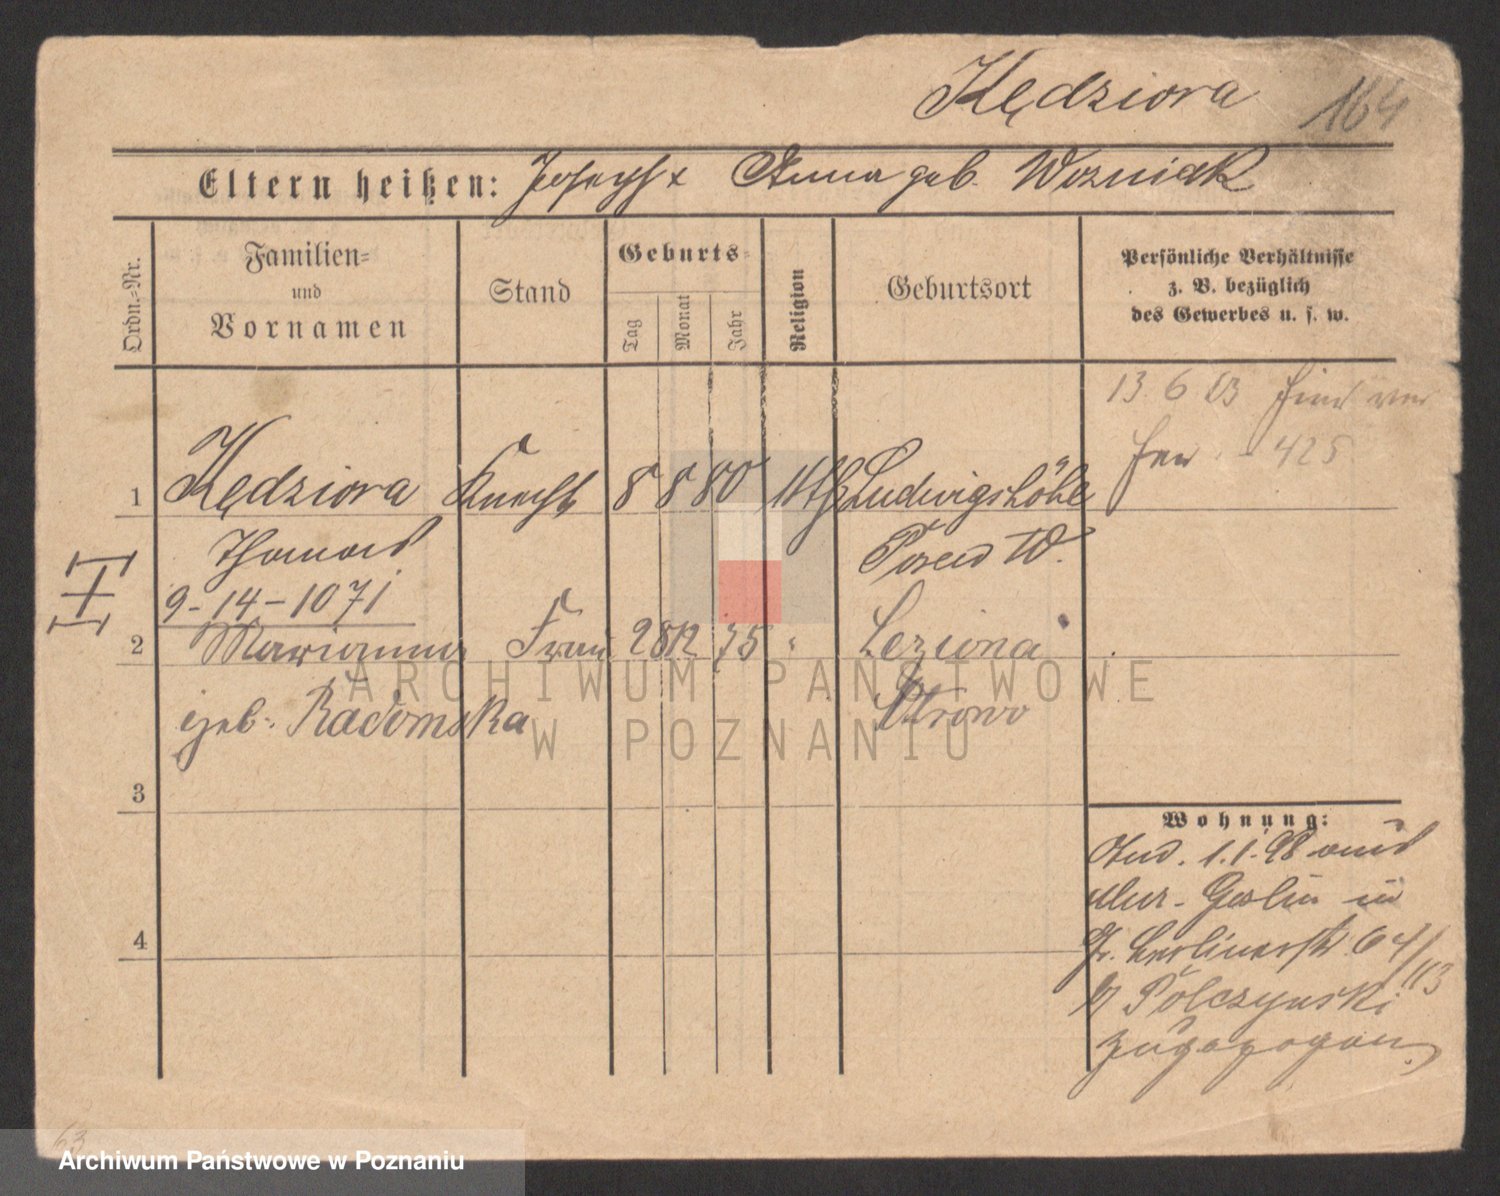 Kędziora 164
Eltern heißen: Joseph x Anna geb. Wozniak
Ordn.=Nr.
Familien=
und
Vornamen
Stand
Geburts=
Tag
Monat
Jahr
Religion
Geburtsort
Persönliche Verhältnisse
z. B. bezüglich
des Gewerbes u. s. w.
13 6 03
425
1 Kędziora Knecht 8 8 80 kth Ludwigshöhe
Thomas Posen W.
9-14-1071
2 Marianna Frau 28 12 75 " Leziona
geb. Radomska Ostrowo
3
4
Wohnung:
1.1.98 aus
Mur. Goslin in
Gr. Berlinerstr. 64/
113
b/ Polczynski
zugezogen
ARCHIWUM PAŃSTWOWE
W POZNANIU
63
Archiwum Państwowe w Poznaniu